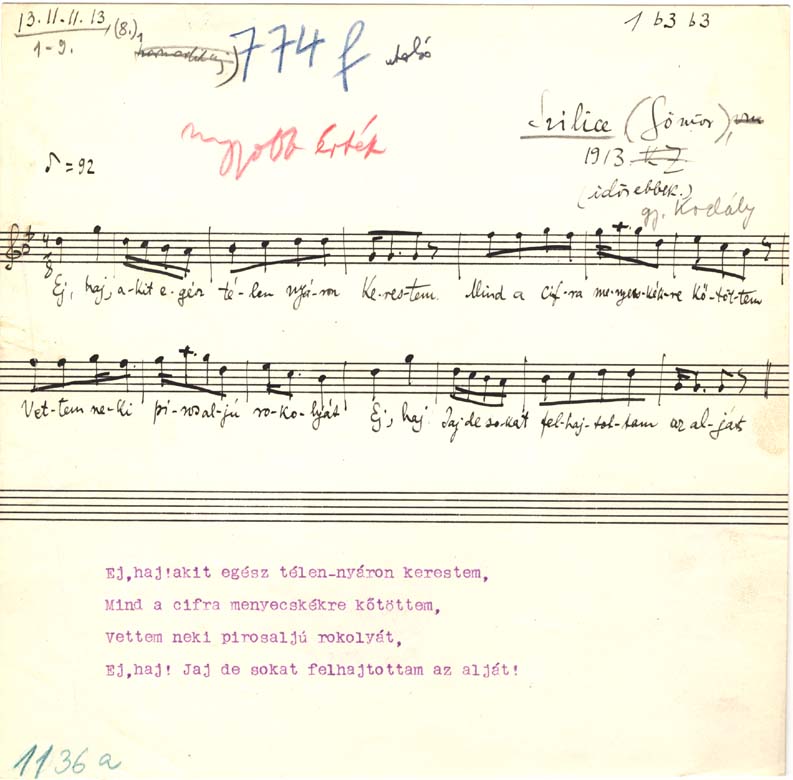 13. II-II. 13, (8.)
1 b3 b3
1-9.
774 f utolsó
Szilice (Gömör),
1913
(idősebbek.)
gy. Kodály
♪ = 92
Ej, haj, a-kit e-gész té-len nyá-ron ke-res-tem. Mind a cif-ra me-nyecs-kék-re kő-töt-tem
Vet-tem ne-ki pi-ros al-jú ro-ko-lyát Ej, haj Jaj de so-kat fel-haj-tot-tam az al-ját
Ej,haj!akit egész télen-nyáron kerestem,
Mind a cifra menyecskékre kőtöttem,
Vettem neki pirosaljú rokolyát,
Ej,haj! Jaj de sokat felhajtottam az alját!
1136 a